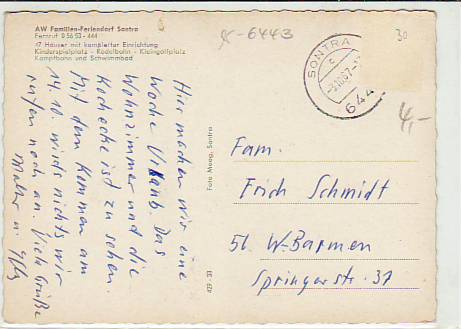 AW Familien-Feriendorf Sontra
Fernruf 0 56 53 - 444
47 Häuser mit kompletter Einrichtung
Kinderspielplatz - Rodelbahn - Kleingolfplatz
Kampfbahn und Schwimmbad
-6443
30
SONTRA
644
4,-
Hier machen wir eine
Woche Urlaub. Das
Wohnzimmer und die
Kochecke ist zu sehen.
Mit dem Kommen am
14. 10. wirds nichts, wir
rufen noch an. Viele Grüße
Walter u.
Foto Maag, Sontra
429 33
Fam.
Erich Schmidt
56 W-Barmen
Springerstr. 37